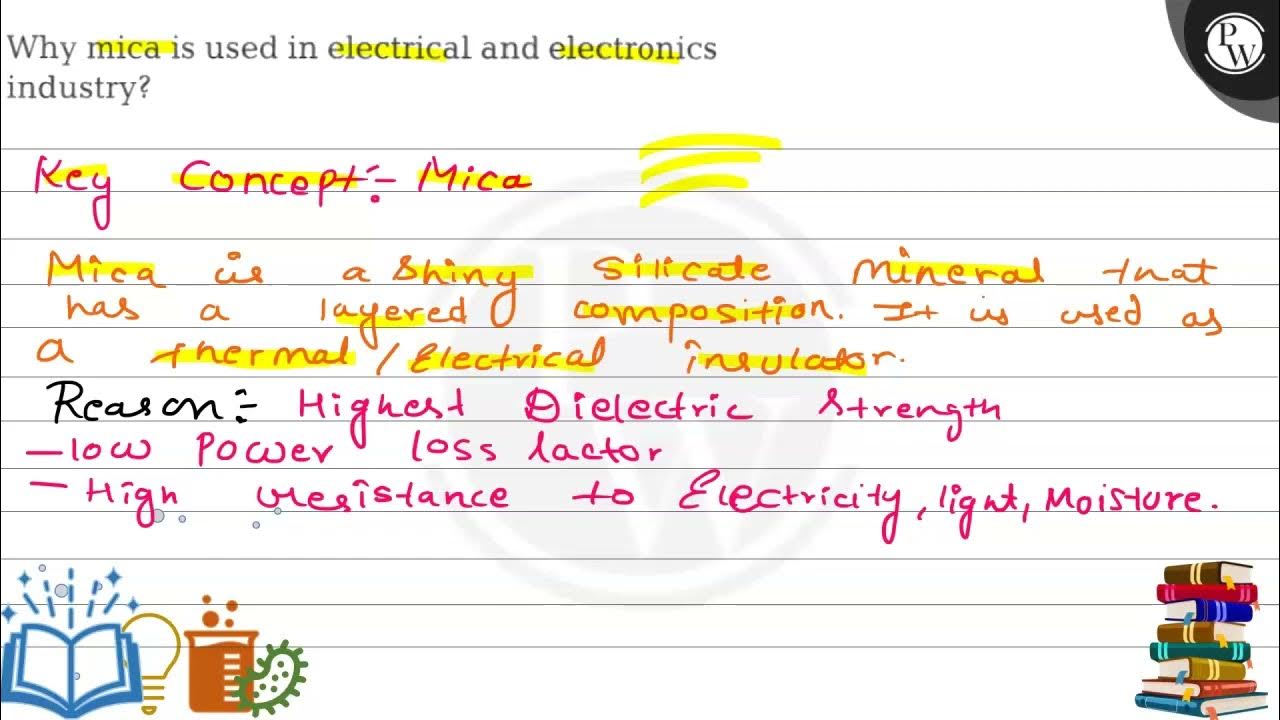 Why mica is used in electrical and electronics
industry?
PW
Key Concept:- Mica
Mica is a shiny silicate mineral that
has a layered composition. It is used as
a thermal/Electrical insulator.
Reason:- Highest Dielectric strength
- low power loss factor
- High resistance to Electricity, light, Moisture.